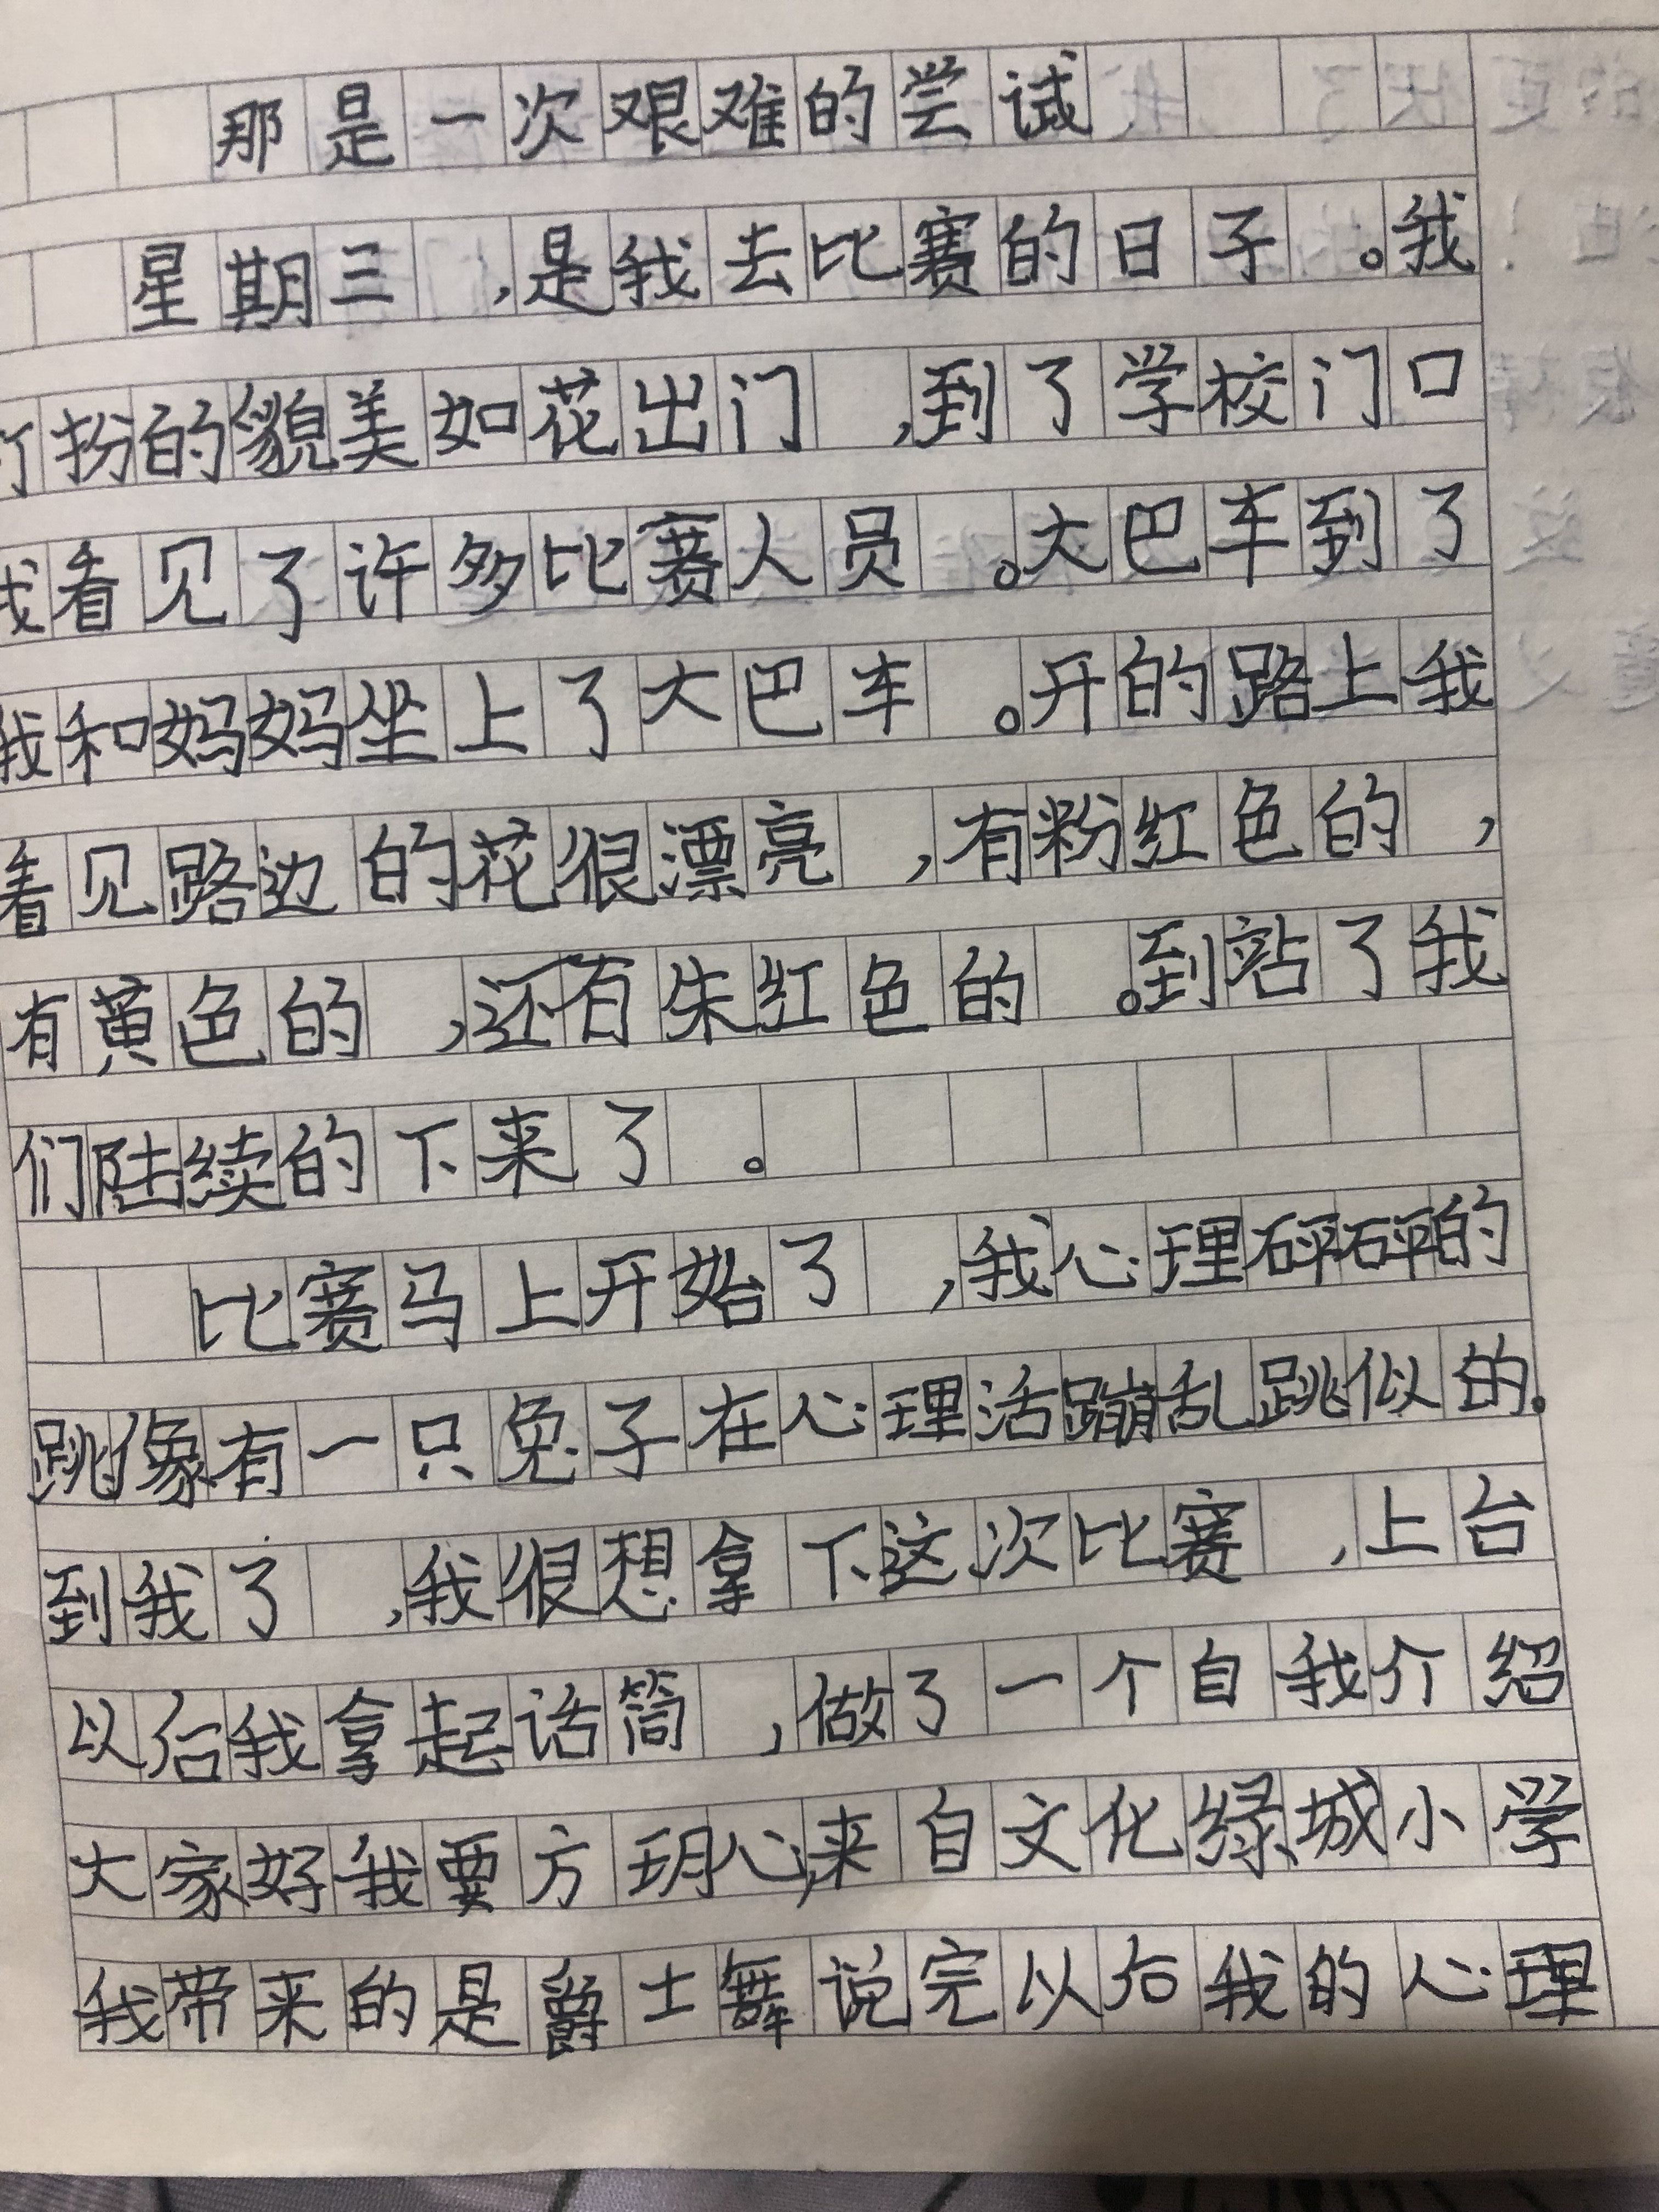 那是一次艰难的尝试
星期三,是我去比赛的日子。我
打扮的貌美如花出门,到了学校门口
我看见了许多比赛人员。大巴车到了
我和妈妈坐上了大巴车。开的路上我
看见路边的花很漂亮,有粉红色的,
有黄色的,还有朱红色的。到站了我
们陆续的下来了。
比赛马上开始了,我心理砰砰的
跳像有一只兔子在心理活蹦乱跳似的。
到我了,我很想拿下这次比赛,上台
以后我拿起话筒,做了一个自我介绍
大家好我要方玥心,来自文化绿城小学
我带来的是爵士舞说完以后我的心理